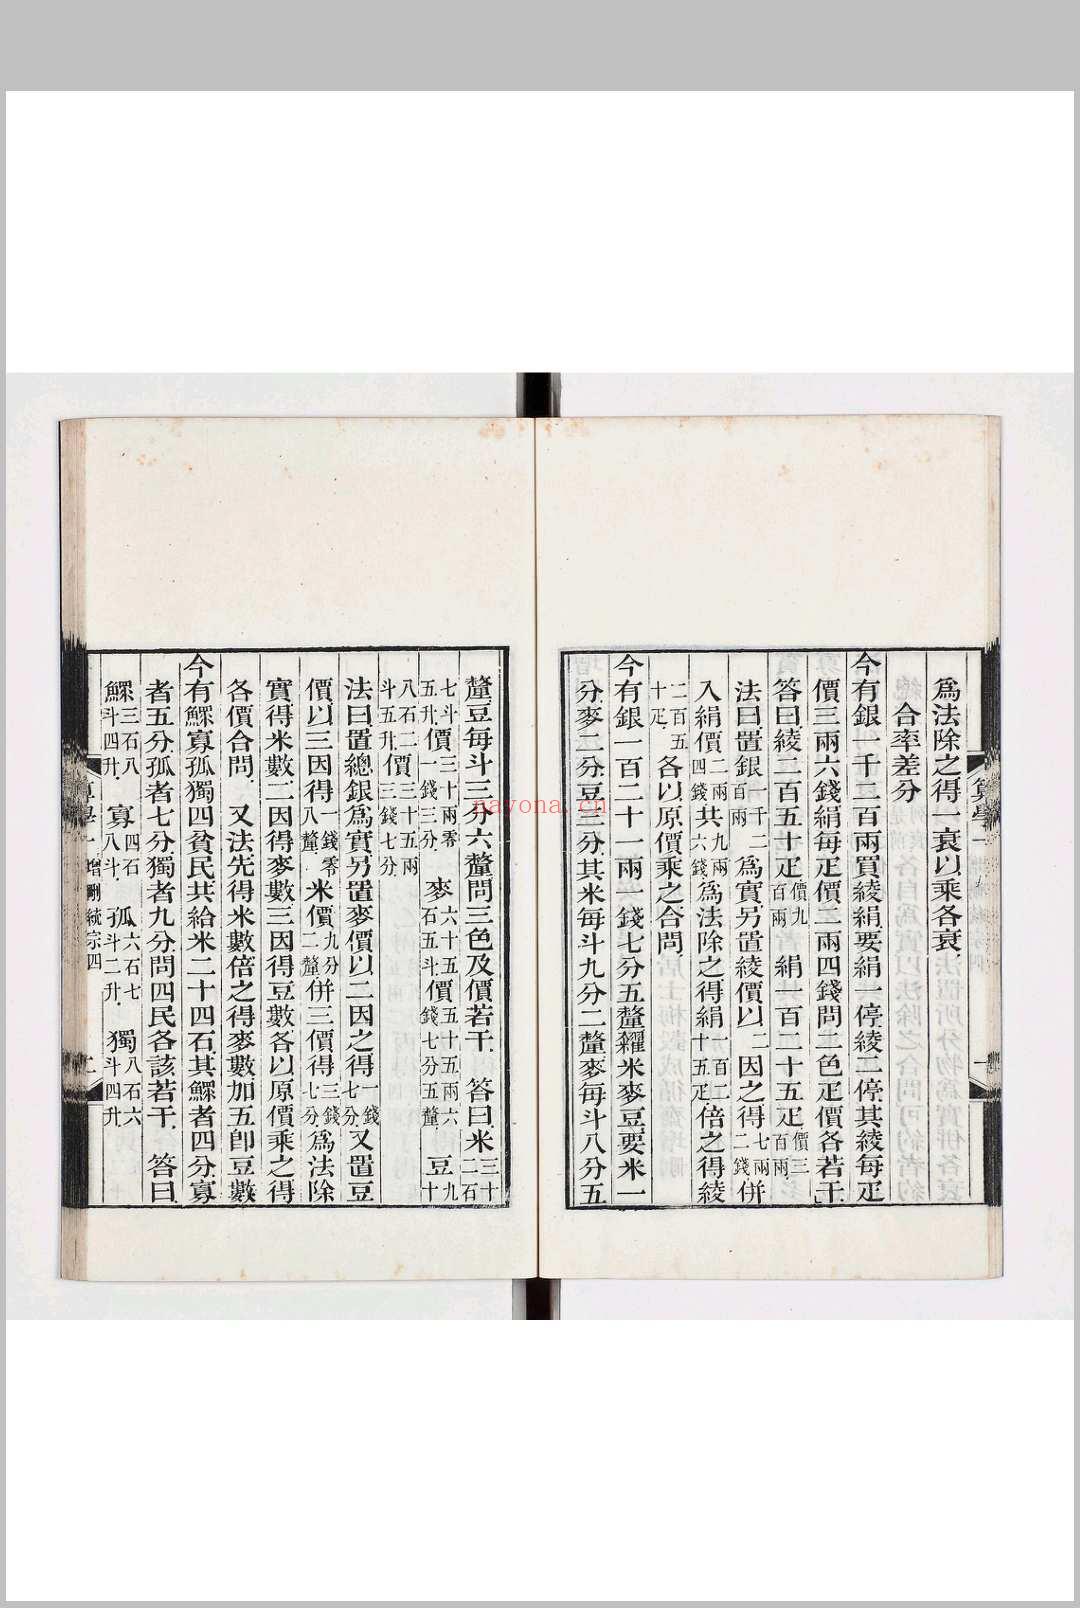 爲法除之得一衰以乘各衰
合率差分
今有銀一千二百兩買綾絹要絹一停綾二停其綾每疋
價三兩六錢絹每疋價二兩四錢問二色疋價各若干
答曰綾二百五十疋價九百兩絹一百二十五疋價三百兩
法曰置銀一千二百兩爲實另置綾價以二因之得七兩二錢併
入絹價二兩四錢共九兩六錢爲法除之得絹一百二十五疋倍之得綾
二百五十疋各以原價乘之合問
今有銀一百二十一兩一錢七分五釐糴米麥豆要米一
分麥二分豆三分其米每斗九分二釐麥每斗八分五
釐豆每斗三分六釐問三色及價若干 答曰米三十二石
七斗五升價三十兩零一錢三分 麥六十五石五斗價五十五兩六錢七分五釐 豆九十
八石二斗五升價三十五兩三錢七分
法曰置總銀爲實另置麥價以二因之得一錢七分又置豆
價以三因得一錢零八釐米價九分二釐併三價得三錢七分爲法除
實得米數二因得麥數三因得豆數各以原價乘之得
各價合問 又法先得米數倍之得麥數加五卽豆數
今有鰥寡孤獨四貧民共給米二十四石其鰥者四分寡
者五分孤者七分獨者九分問四民各該若干 答曰
鰥三石八斗四升 寡四石八斗 孤六石七斗二升 獨八石六斗四升
算學一 增刪統宗四 二
nayona.cn